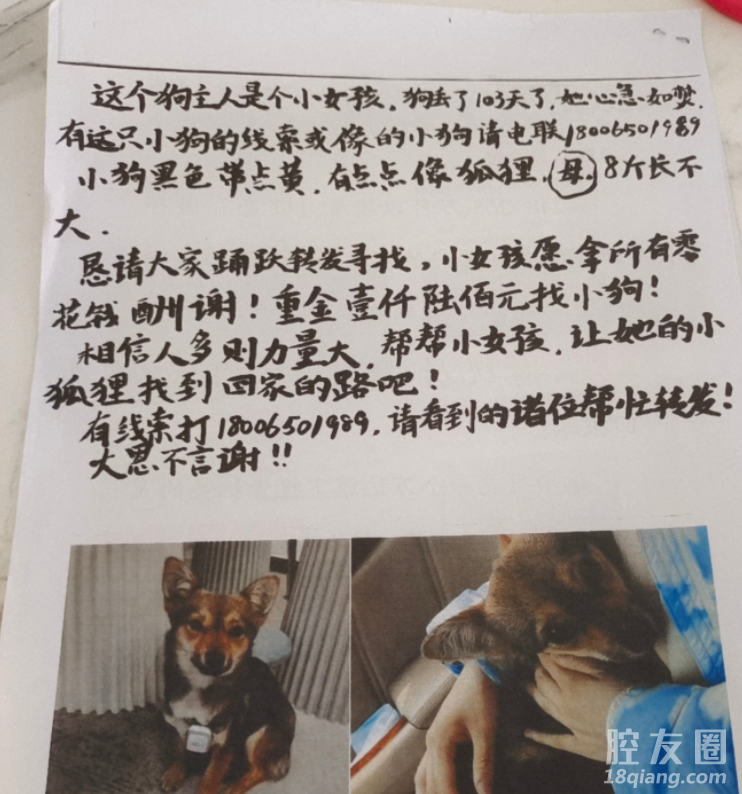 这个狗主人是个小女孩.狗丢了103天了,她心急如焚.
有这只小狗的线索或像的小狗请电联18006501989
小狗黑色带点黄.有点点像狐狸.母.8斤长不
大.
恳请大家踊跃转发寻找,小女孩愿拿所有零
花钱酬谢!重金壹仟陆佰元找小狗!
相信人多则力量大.帮帮小女孩.让她的小
狐狸找到回家的路吧!
有线索打18006501989.请看到的诸位帮忙转发!
大恩不言谢!!
腔友圈
18qiang.com